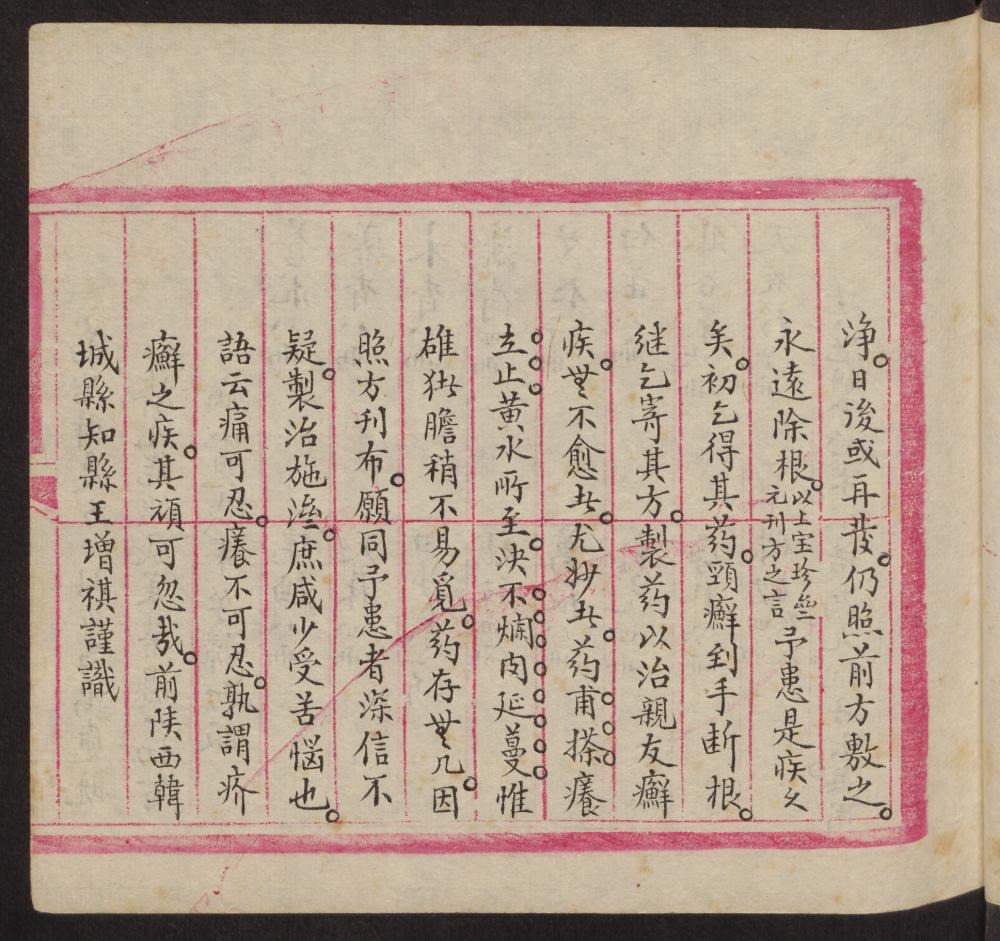 浄。日後或再發。仍照前方敷之。
永遠除根。以上宝珍𠫵元刊方之言予患是疾久
矣。初乞得其药。頸癬到手断根。
继乞寄其方。製药以治親友癬
疾。無不愈者。尤妙者。药甫搽。癢
立止。黄水所至。决不爛肉延蔓。惟
雄猪膽稍不易覓。药存無几。因
照方刊布。願同予患者深信不
疑。製治施送。庶咸少受苦惱也。
語云痛可忍。癢不可忍。孰謂疥
癬之疾。其頑可忽哉。前陕西韓
城縣知縣王增祺謹識